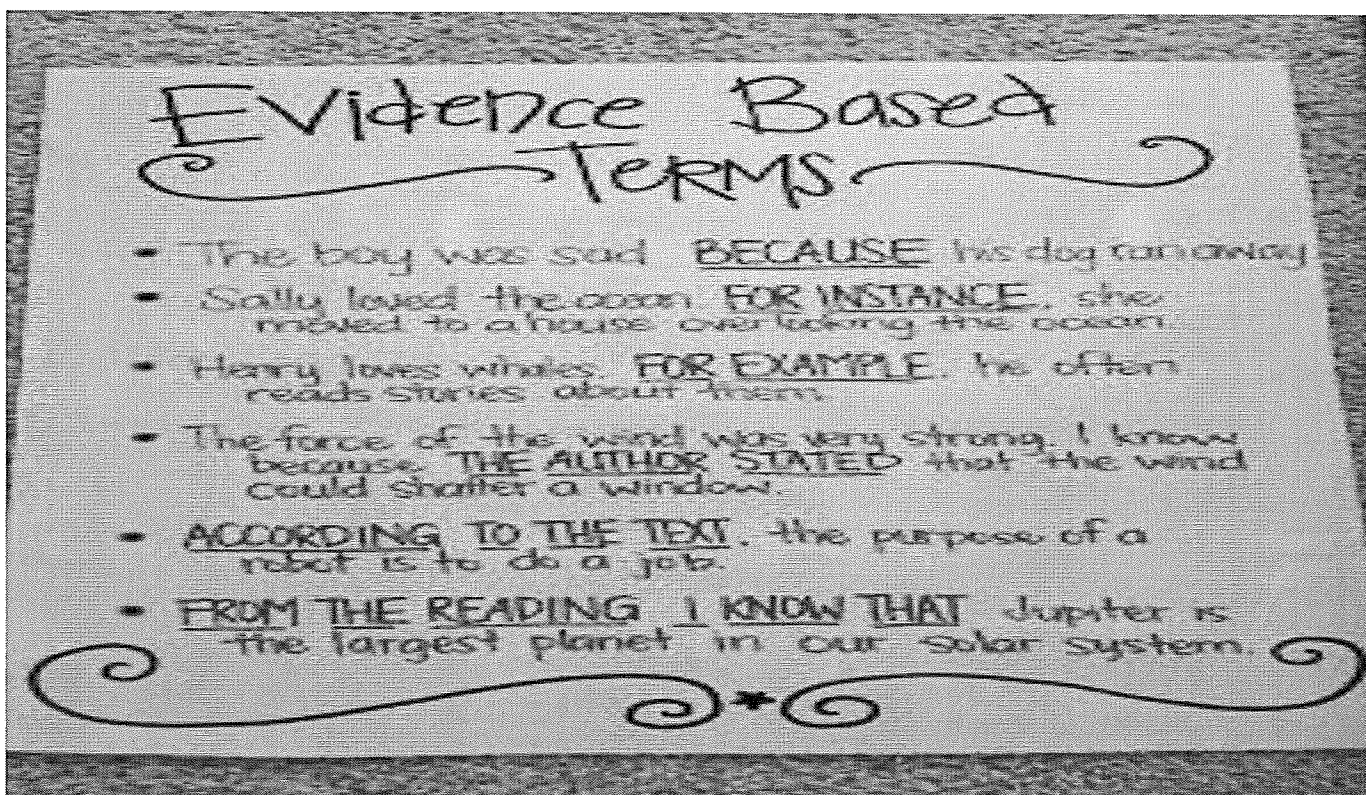 Evidence Based
TERMS
• The boy was sad BECAUSE his dog ran away
• Sally loved the ocean. FOR INSTANCE, she
moved to a house overlooking the ocean.
• Henry loves whales. FOR EXAMPLE, he often
reads stories about them.
• The force of the wind was very strong. I know
because THE AUTHOR STATED that the wind
could shatter a window.
• ACCORDING TO THE TEXT, the purpose of a
robot is to do a job.
• FROM THE READING I KNOW THAT Jupiter is
the largest planet in our solar system.